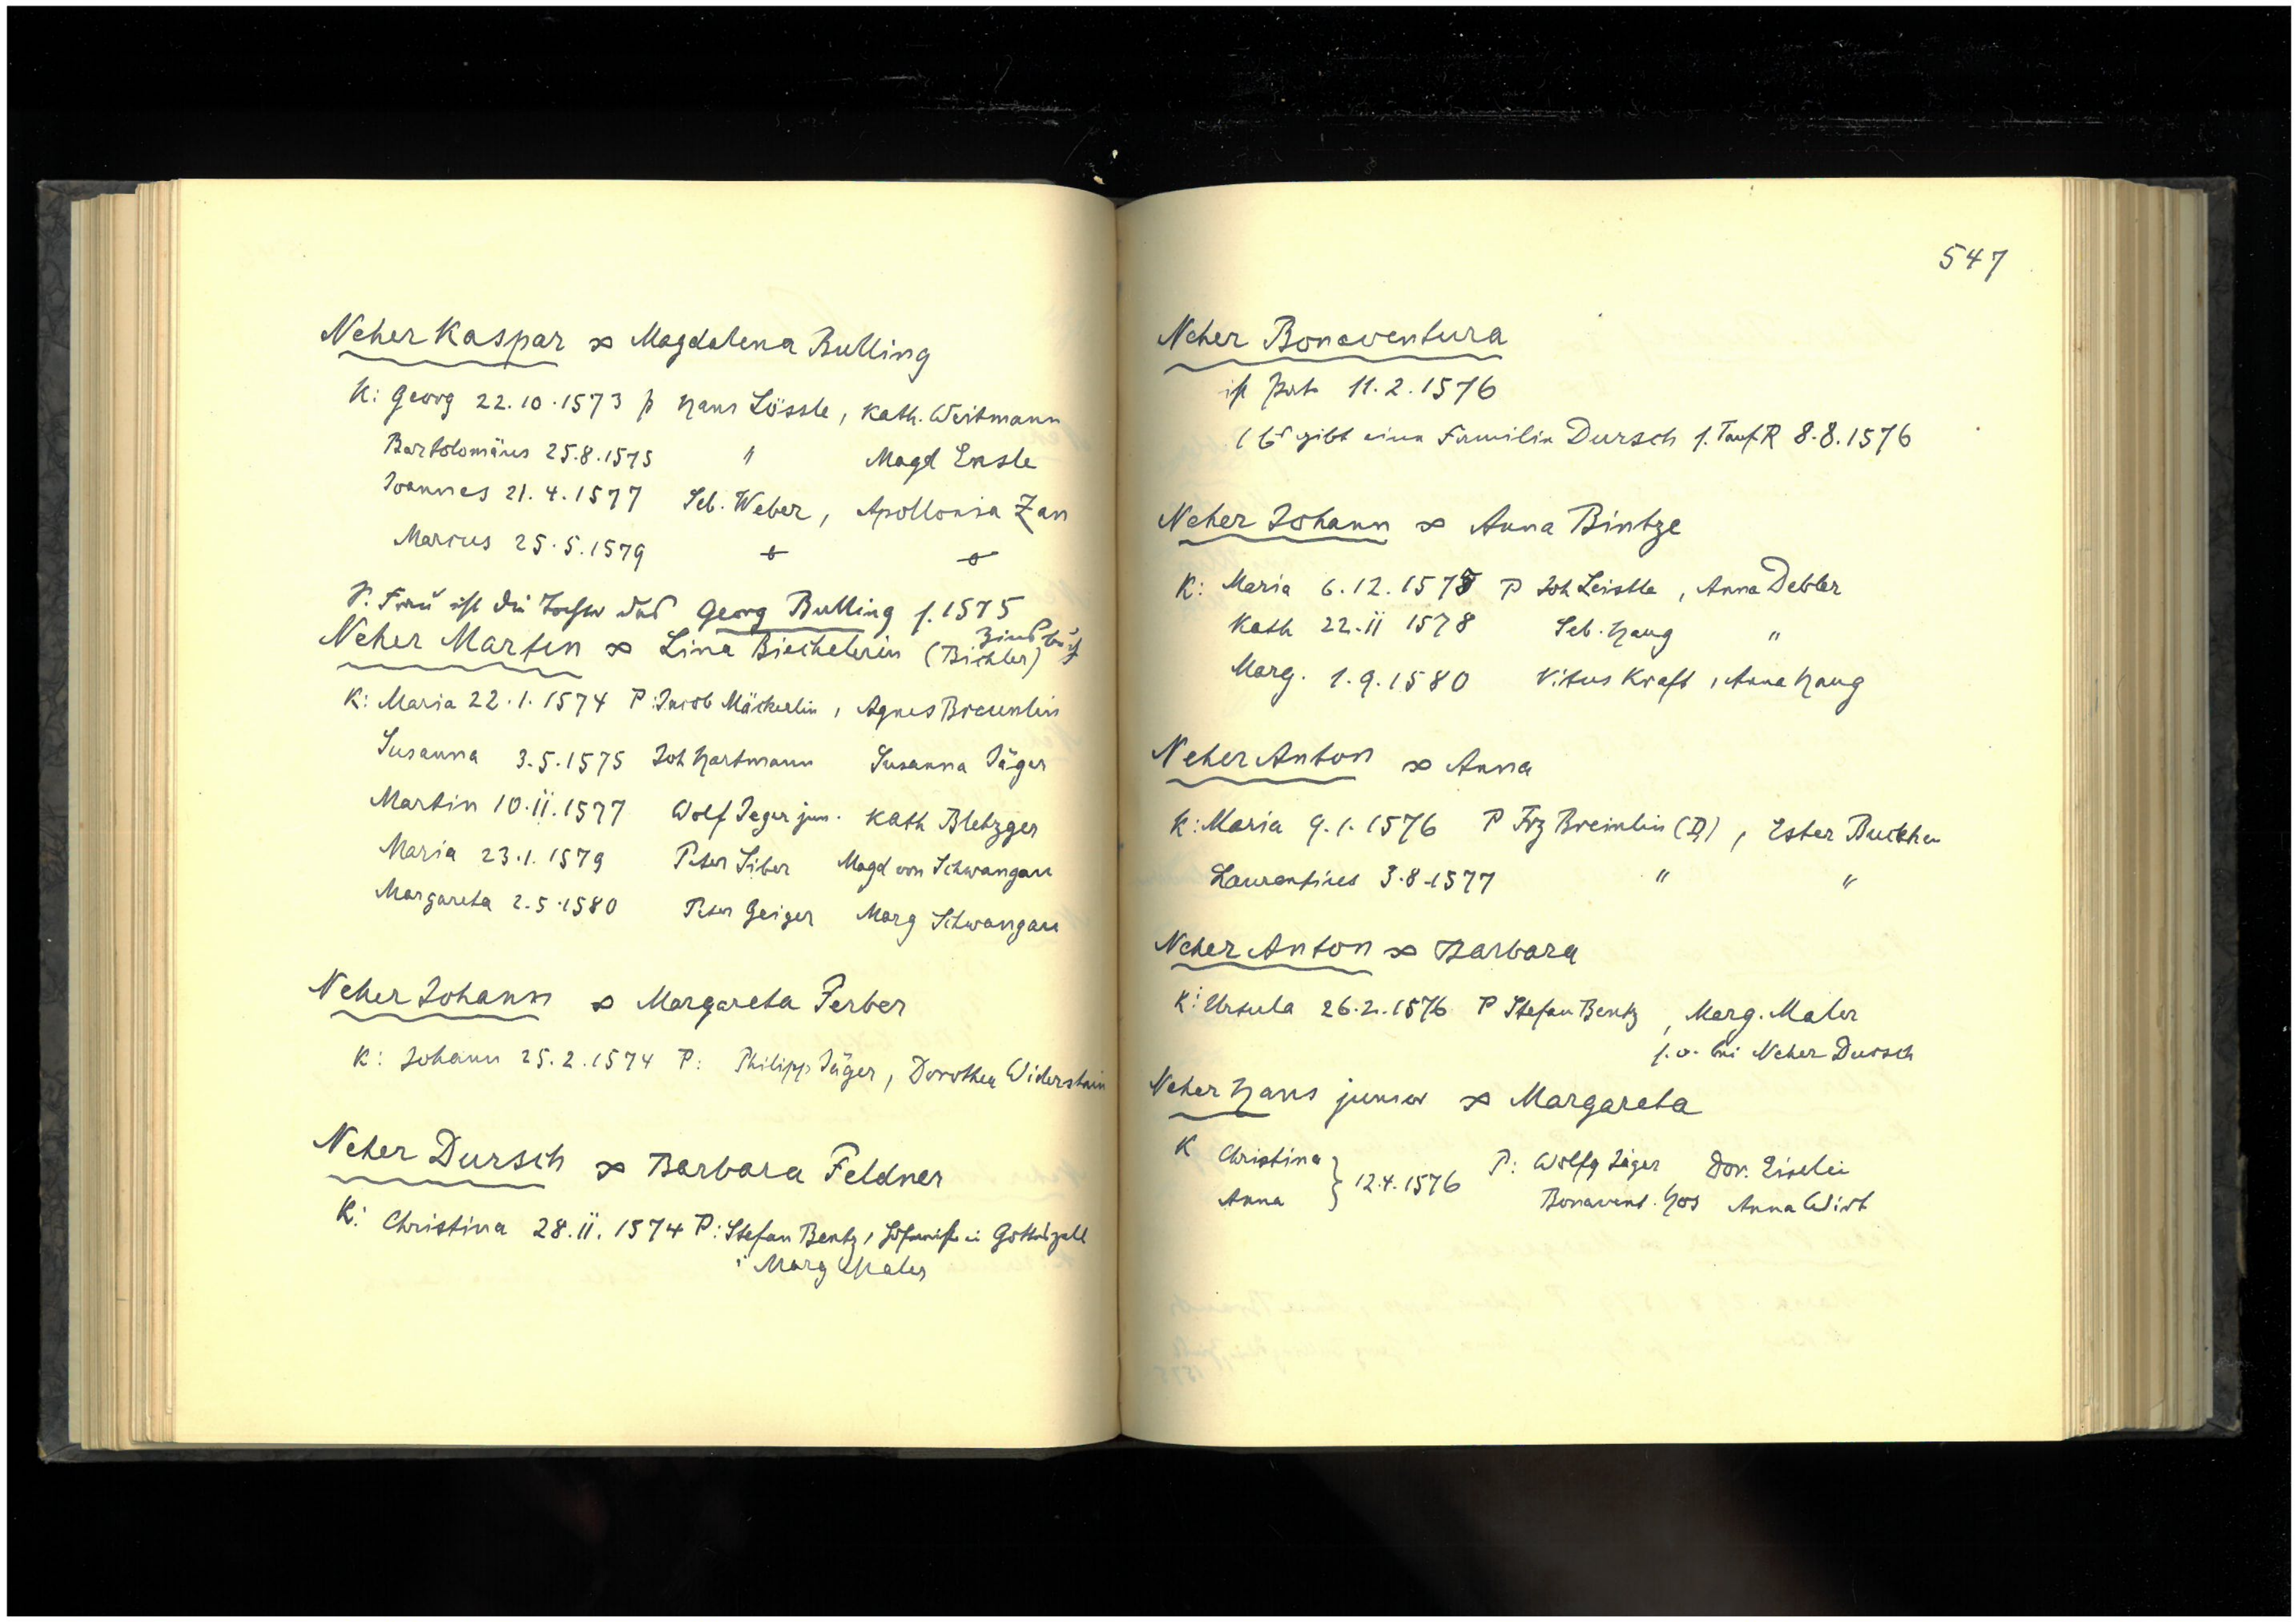 Neher Kaspar ∞ Magdalena Bulling
K: Georg 22.10.1573 p Hans Lössle, Kath. Weitmann
Bartolomäus 25.8.1575 " Magd Ensle
Joannes 21.4.1577 Seb. Weber, Apollonia Zan
Marcus 25.5.1579
S. Frau ist die Tochter des Georg Bulling s. 1575
Zinsbuch
Neher Martin ∞ Lina Biechelerin (Bichler)
K: Maria 22.1.1574 P: Jacob Mäckerlin, Agnes Breunlin
Susanna 3.5.1575 Joh Hartmann Susanna Jäger
Martin 10.11.1577 Wolf Jeger jun. Kath Bletzger
Maria 23.1.1579 Peter Siber Magd von Schwangau
Margareta 2.5.1580 Peter Geiger Marg Schwangau
Neher Johann ∞ Margareta Ferber
K: Johann 25.2.1574 P: Philipp Jäger, Dorothea Widerstain
Neher Dursch ∞ Barbara Feldner
K: Christina 28.11.1574 P: Stefan Bentz, Hofmeister in Gotteszell
Marg Maler
547
Neher Bonaventura
ist Pate 11.2.1576
(Es gibt eine Familie Dursch s. Tauf.R 8.8.1576
Neher Johann ∞ Anna Bintze
K: Maria 6.12.1575 P Joh Leistle, Anna Debler
Kath 22.11 1578 Seb. Haug "
Marg. 1.9.1580 Vitus Kraft, Anna Haug
Neher Anton ∞ Anna
K: Maria 9.1.1576 P Frz Breinlin (D), Ester
Laurentius 3.8.1577 " "
Neher Anton ∞ Barbara
K: Ursula 26.2.1576 P Stefan Bentz, Marg. Maler
s.o. bei Neher Dursch
Neher Hans junior ∞ Margareta
K Christina } 12.4.1576 P: Wolfg Jäger Dor. Eiselin
Anna Bonavent. Hos Anna Wirt